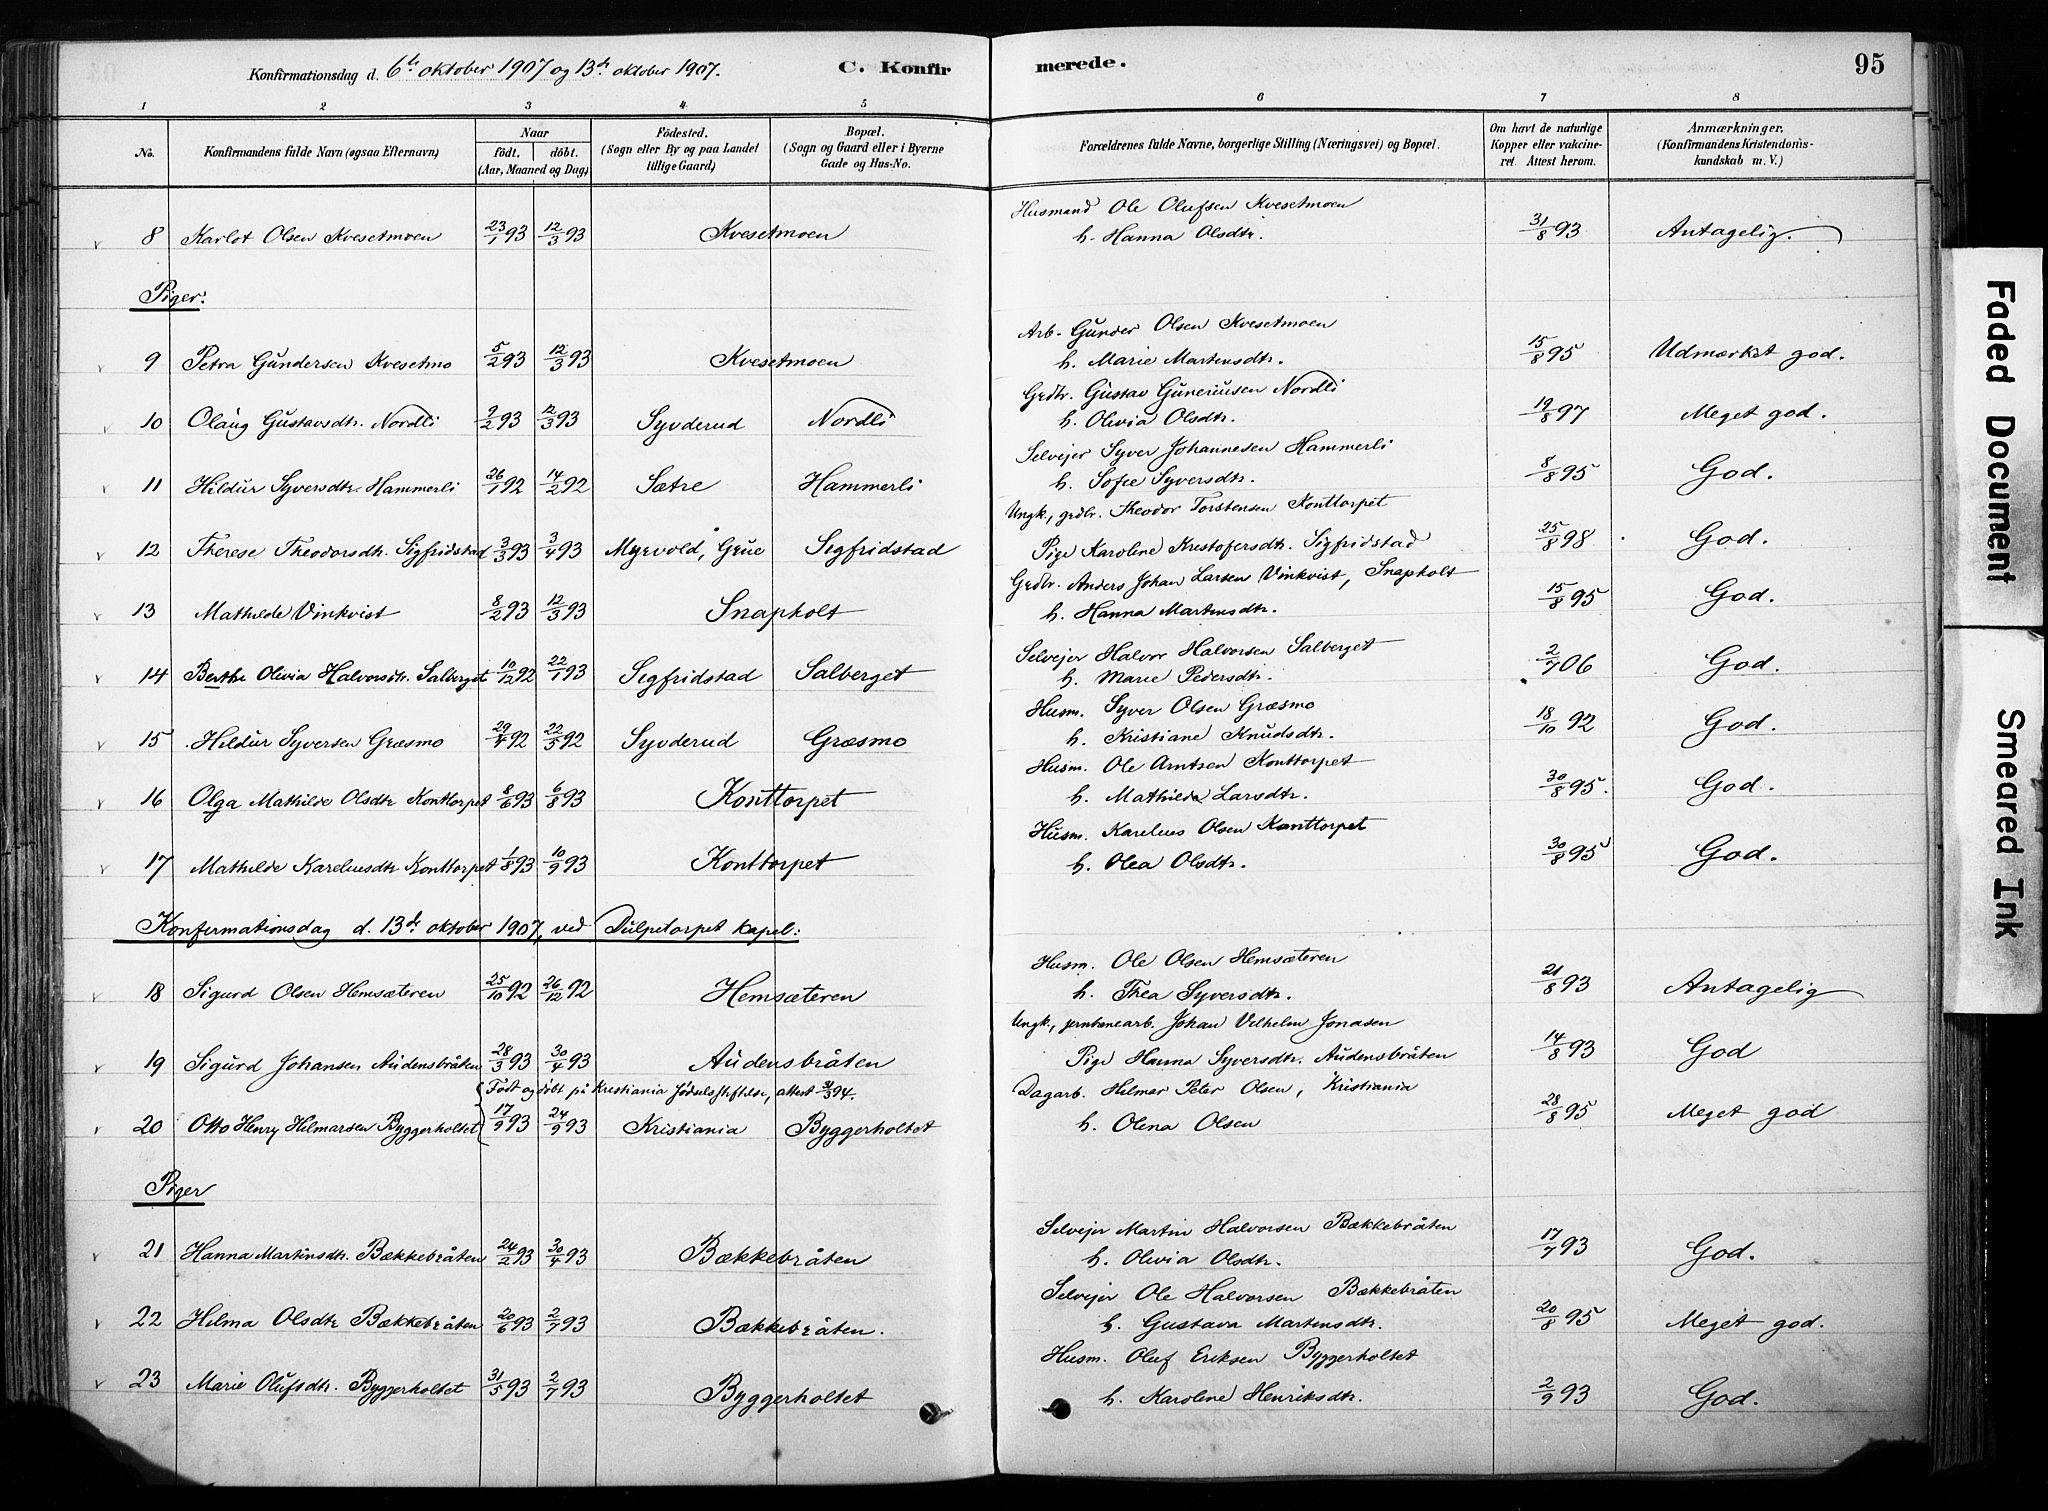 Konfirmationsdag d. 6te oktober 1907 og 13de oktober 1907.
C. Konfirmerede.
95
1 2 3 4 5 6 7 8
No.
Konfirmandens fulde Navn (ogsaa Efternavn)
Naar
födt. döbt.
(Aar, Maaned og Dag)
Födested.
(Sogn eller By og paa Landet
tillige Gaard)
Bopæl.
(Sogn og Gaard eller i Byerne
Gade og Hus-No.
Forældrenes fulde Navne, borgerlige Stilling (Næringsvei) og Bopæl.
Om havt de naturlige
Kopper eller vakcine-
ret. Attest herom.
Anmærkninger.
(Konfirmandens Kristendoms-
kundskab m. V.)
Husmand Ole Olufsen Kvesetmoen
8 Karlot Olsen Kvesetmoen 23/1 93 12/3 93 Kvesetmoen h. Hanna Olsdtr. 31/8 93 Antagelig.
Piger.
Arb. Gunder Olsen Kvesetmoen
9 Petra Gundersen Kvesetmo 5/2 93 12/3 93 Kvesetmoen h. Marie Martinsdtr. 15/8 95 Udmærket god.
Grdbr. Gustav Guneriusen Nordli
10 Olaug Gustavsdtr. Nordli 9/2 93 12/3 93 Syvderud Nordli h. Olivia Olsdtr. 19/8 97 Meget god.
Selvejer Syver Johannesen Hammerli
11 Hildur Syversdtr. Hammerli 26/1 92 14/2 92 Sætre Hammerli h. Sofie Syversdtr. 8/8 95 God.
Ungk., grdbr. Theodor Torstensen Konttorpet
12 Therese Theodorsdtr. Sigfridstad 3/3 93 3/4 93 Myrvold, Grue Sigfridstad Pige Karoline Kristofersdtr. Sigfridstad 25/8 98 God.
Grdbr. Anders Johan Larsen Vinkvist, Snapholt
13 Mathilde Vinkvist 8/2 93 12/3 93 Snapholt h. Hanna Martinsdtr. 15/8 95 God.
Selvejer Halvor Halvorsen Salberget
14 Berthe Olivia Halvorsdtr. Salberget 10/12 92 22/1 93 Sigfridstad Salberget h. Marie Pedersdtr. 2/7 06 God.
Husm. Syver Olsen Græsmo
15 Hildur Syversen Græsmo 29/4 92 22/5 92 Syvderud Græsmo h. Kristiane Knudsdtr. 18/10 92 God.
Husm. Ole Arntsen Konttorpet
16 Olga Mathilde Olsdtr Konttorpet 8/6 93 6/8 93 Konttorpet h. Mathilde Larsdtr. 30/8 95. God.
Husm. Karelius Olsen Konttorpet
17 Mathilde Kareliusdtr Konttorpet 1/8 93 10/9 93 Konttorpet h. Olea Olsdtr. 30/8 95 God.
Konfirmationsdag d. 13de oktober 1907, ved Tulpetorpet kapel:
Husm. Ole Olsen Hemsæteren
18 Sigurd Olsen Hemsæteren 25/10 92 26/12 92 Hemsæteren h. Thea Syversdtr. 21/8 93 Antagelig
Ungk., jernbanearb. Johan Vilhelm Jonasen
19 Sigurd Johansen Audensbråten 28/3 93 30/4 93 Audensbråten Pige Hanna Syversdtr. Audensbråten 14/8 93 God
Født og døbt på Kristiania Fødselsstiftelse, attest 9/3 94. Dagarb. Hilmar Peter Olsen, Kristiania
20 Otto Henry Hilmarsen Byggerholtet 17/9 93 24/9 93 Kristiania Byggerholtet h. Olena Olsen 28/8 95 Meget god
Piger
Selvejer Martin Halvorsen Bækkebråten
21 Hanna Martinsdtr. Bækkebråten 24/2 93 30/4 93 Bækkebråten h. Olivia Olsdtr. 17/7 93 God.
Selvejer Ole Halvorsen Bækkebråten
22 Hilma Olsdtr Bækkebråten 20/6 93 2/7 93 Bækkebråten. h. Gustava Martinsdtr. 20/8 95 Meget god.
Husm. Oluf Eriksen Byggerholtet
23 Marie Olufsdtr. Byggerholtet 31/5 93 2/7 93 Byggerholtet h. Karoline Henriksdtr. 2/9 93 God.
Faded Document
Smeared Ink